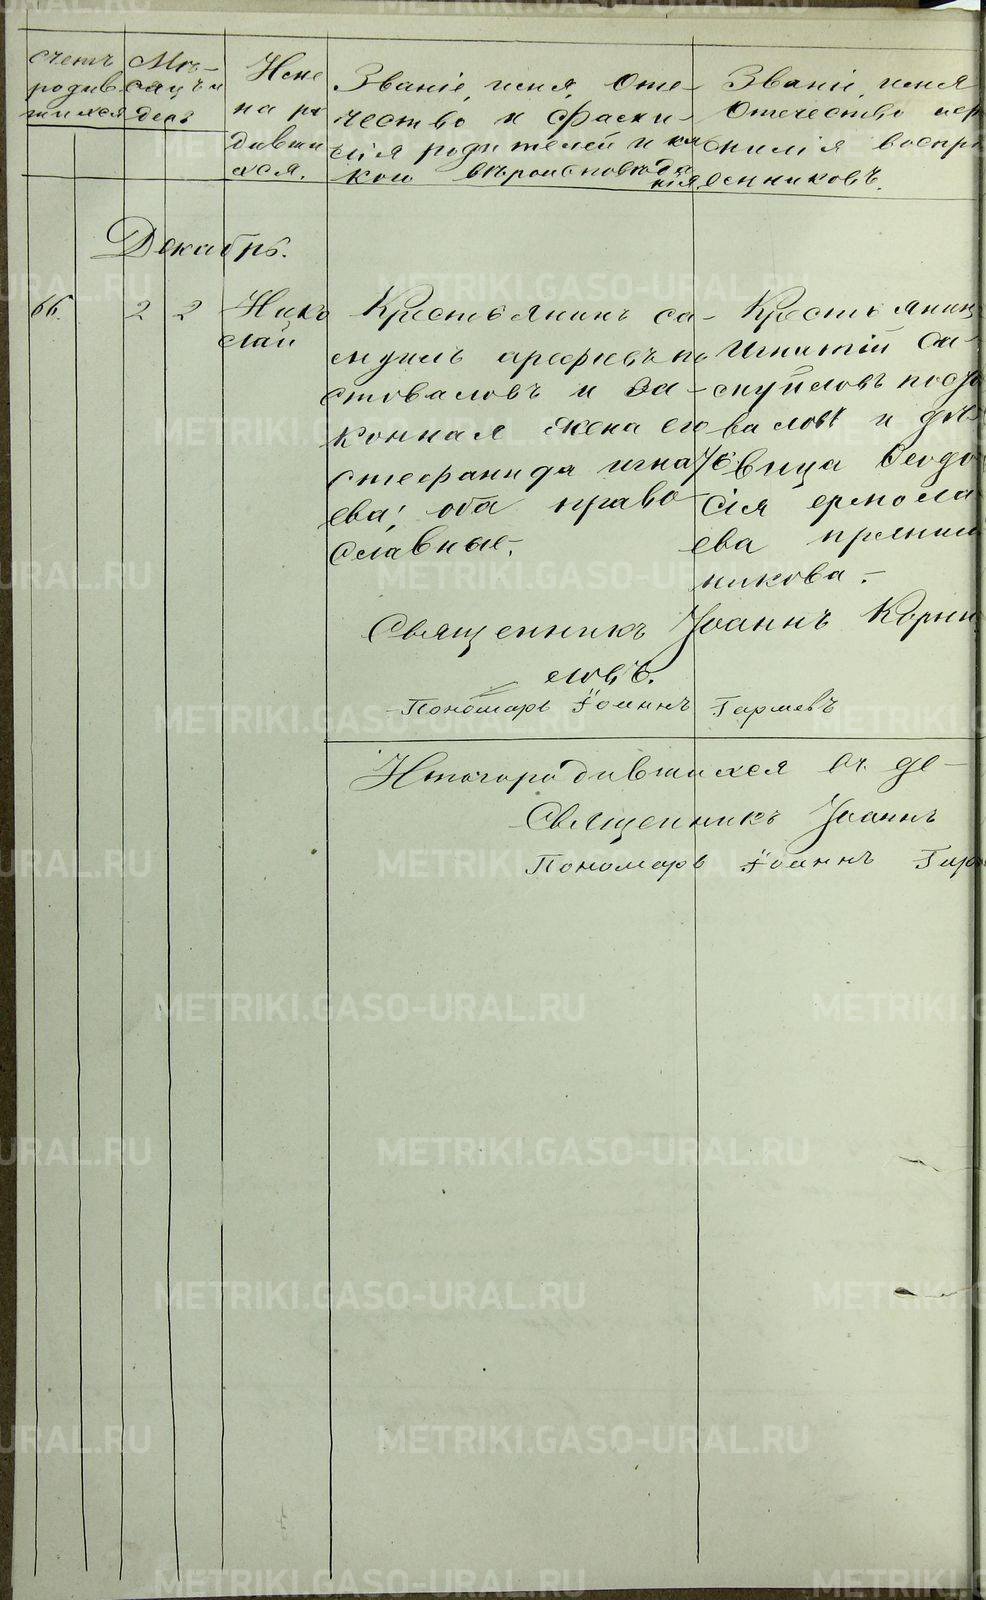 Счетъ родив шихся
Мѣ- сяцъ и день
Име на ро дивши хся.
Званіе, имя, Оте-
чество и фами-
лія родителей и ка
кои вѣроисповѣда
нія
Званіе, имя
Отечество и
милія воспрі
емниковъ.
Декабрь.
66. 2 2 Нико
лаи
Крестьянинъ са-
муилъ арефьевъ по
стоваловъ и за-
конная жена его
стефанида игнатье
ева; оба право
славные.
Крестьянинъ
Игнатій са-
муйловъ посто
валовъ и дѣ-
вица Феодо
сія ермола
ева прянич
никова.
Священникъ Іоаннъ Корни
ловъ.
Пономарь Іоаннъ
Итого родившихся въ де-
Священникъ Іоаннъ
Пономарь Іоаннъ
METRIKI.GASO-URAL.RU